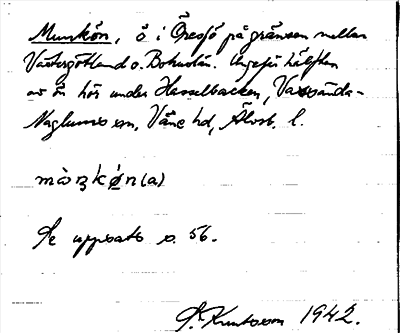 Munkön, ö i Öresjö på gränsen mellan
Västergötland o. Bohuslän. Ungefär hälften
av ön hör under Hasselbacken, Vassända-
Naglums sn, Väne hd, Älvsb. l.
màŋkǿn(a)
Se uppsats s. 56.
1942.